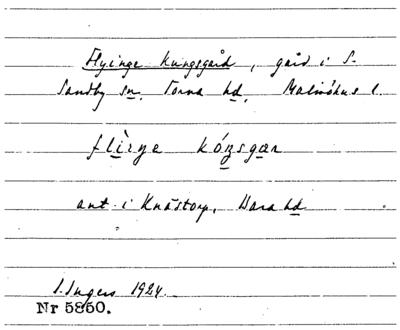 Flyinge Kungsgård, gård i S.
Sandby sn, Torna hd, Malmöhus l.
flìŋye kóŋsgær
ant. i Knästorp, Bara hd
I. Ingers 1924.
Nr 5850.